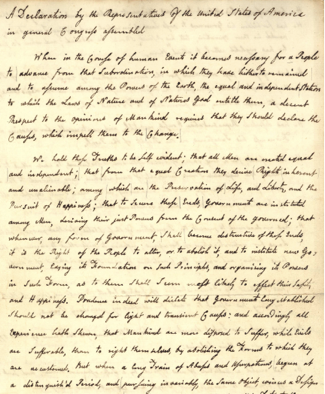 A Declaration by the Representatives of the United States of America
in general Congress assembled
When in the Course of human Events it becomes necessary for a People
to advance from that Subordination, in which they have hitherto remained
and to assume among the Powers of the Earth, the equal and independent Station
to which the Laws of Nature and of Nature's God entitle them, a decent
Respect to the opinions of Mankind requires that they should declare the
Causes, which impell them to the Change.
We hold these Truths to be self evident; that all Men are created equal
and independent; that from that equal Creation they derive Rights inherent
and unalienable; among which are the Preservation of Life, and Liberty, and the
Pursuit of Happiness; that to secure these Ends, Governments are instituted
among Men, deriving their just Powers from the Consent of the governed; that
whenever, any form of Government, shall become destructive of these Ends,
it is the Right of the People to alter, or to abolish it, and to institute new Go-
vernment, laying its Foundation on such Principles, and organizing its Powers
in such Form, as to them shall seem most likely to effect their Safety
and Happiness. Prudence indeed will dictate that Governments long established
should not be changed for light and transient Causes: and accordingly all
Experience hath shewn, that Mankind are more disposed to suffer, while Evils
are sufferable, than to right themselves, by abolishing the Forms to which they
are accustomed. But when a long Train of Abuses and Usurpations, begun at
a distinguish'd Period, and pursuing invariably, the same Object, evinces a Design